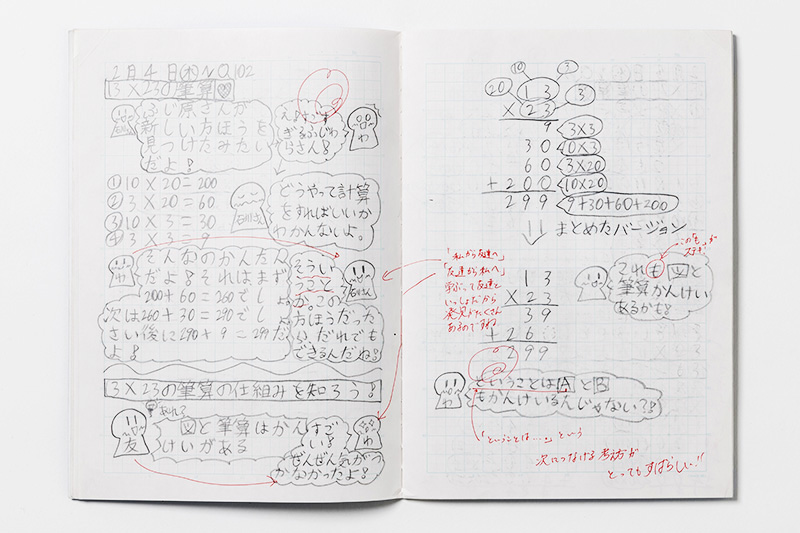 2月4日(木)No.102
13×23の筆算
ふじ原さんが
新しい方ほうを
見つけたみたい
だよ!
すぎるふじわ
らさん!
わ
①10×20=200
②3×20=60
③10×3=30
④3×3=9
どうやって計算
をすればいいか
わかんないよ。
そんなのかんたん
だよ!それはまず
200+60=260でしょ
次は260+30=290でしょ
さい後に290+9=299だ
よ!
わ
そうい
うこと
か。この
方ほうだった
らだれでも
できるんだね!
13×23の筆算の仕組みを知ろう!
友
図と筆算はかん
けいがある
すご
い!
ぜんぜん気がつ
かなかったよ!
わ
10
3
20
13
3
×23
9 3×3
30 10×3
60 3×20
+200 10×20
299 9+30+60+200
まとめたバージョン
13
×23
39
+26
299
この「も」が
ステキ!
これも図と
筆算かんけい
あるかも!
わ
「私から友達へ」
「友達から私へ」
学ぶって友達と
いっしょだから
発見がたくさん
あるのですね
ということはAとB
もかんけいあるんじゃない?!
わ
「ということは…」という
次につなげる考え方が
とってもすばらしい!!